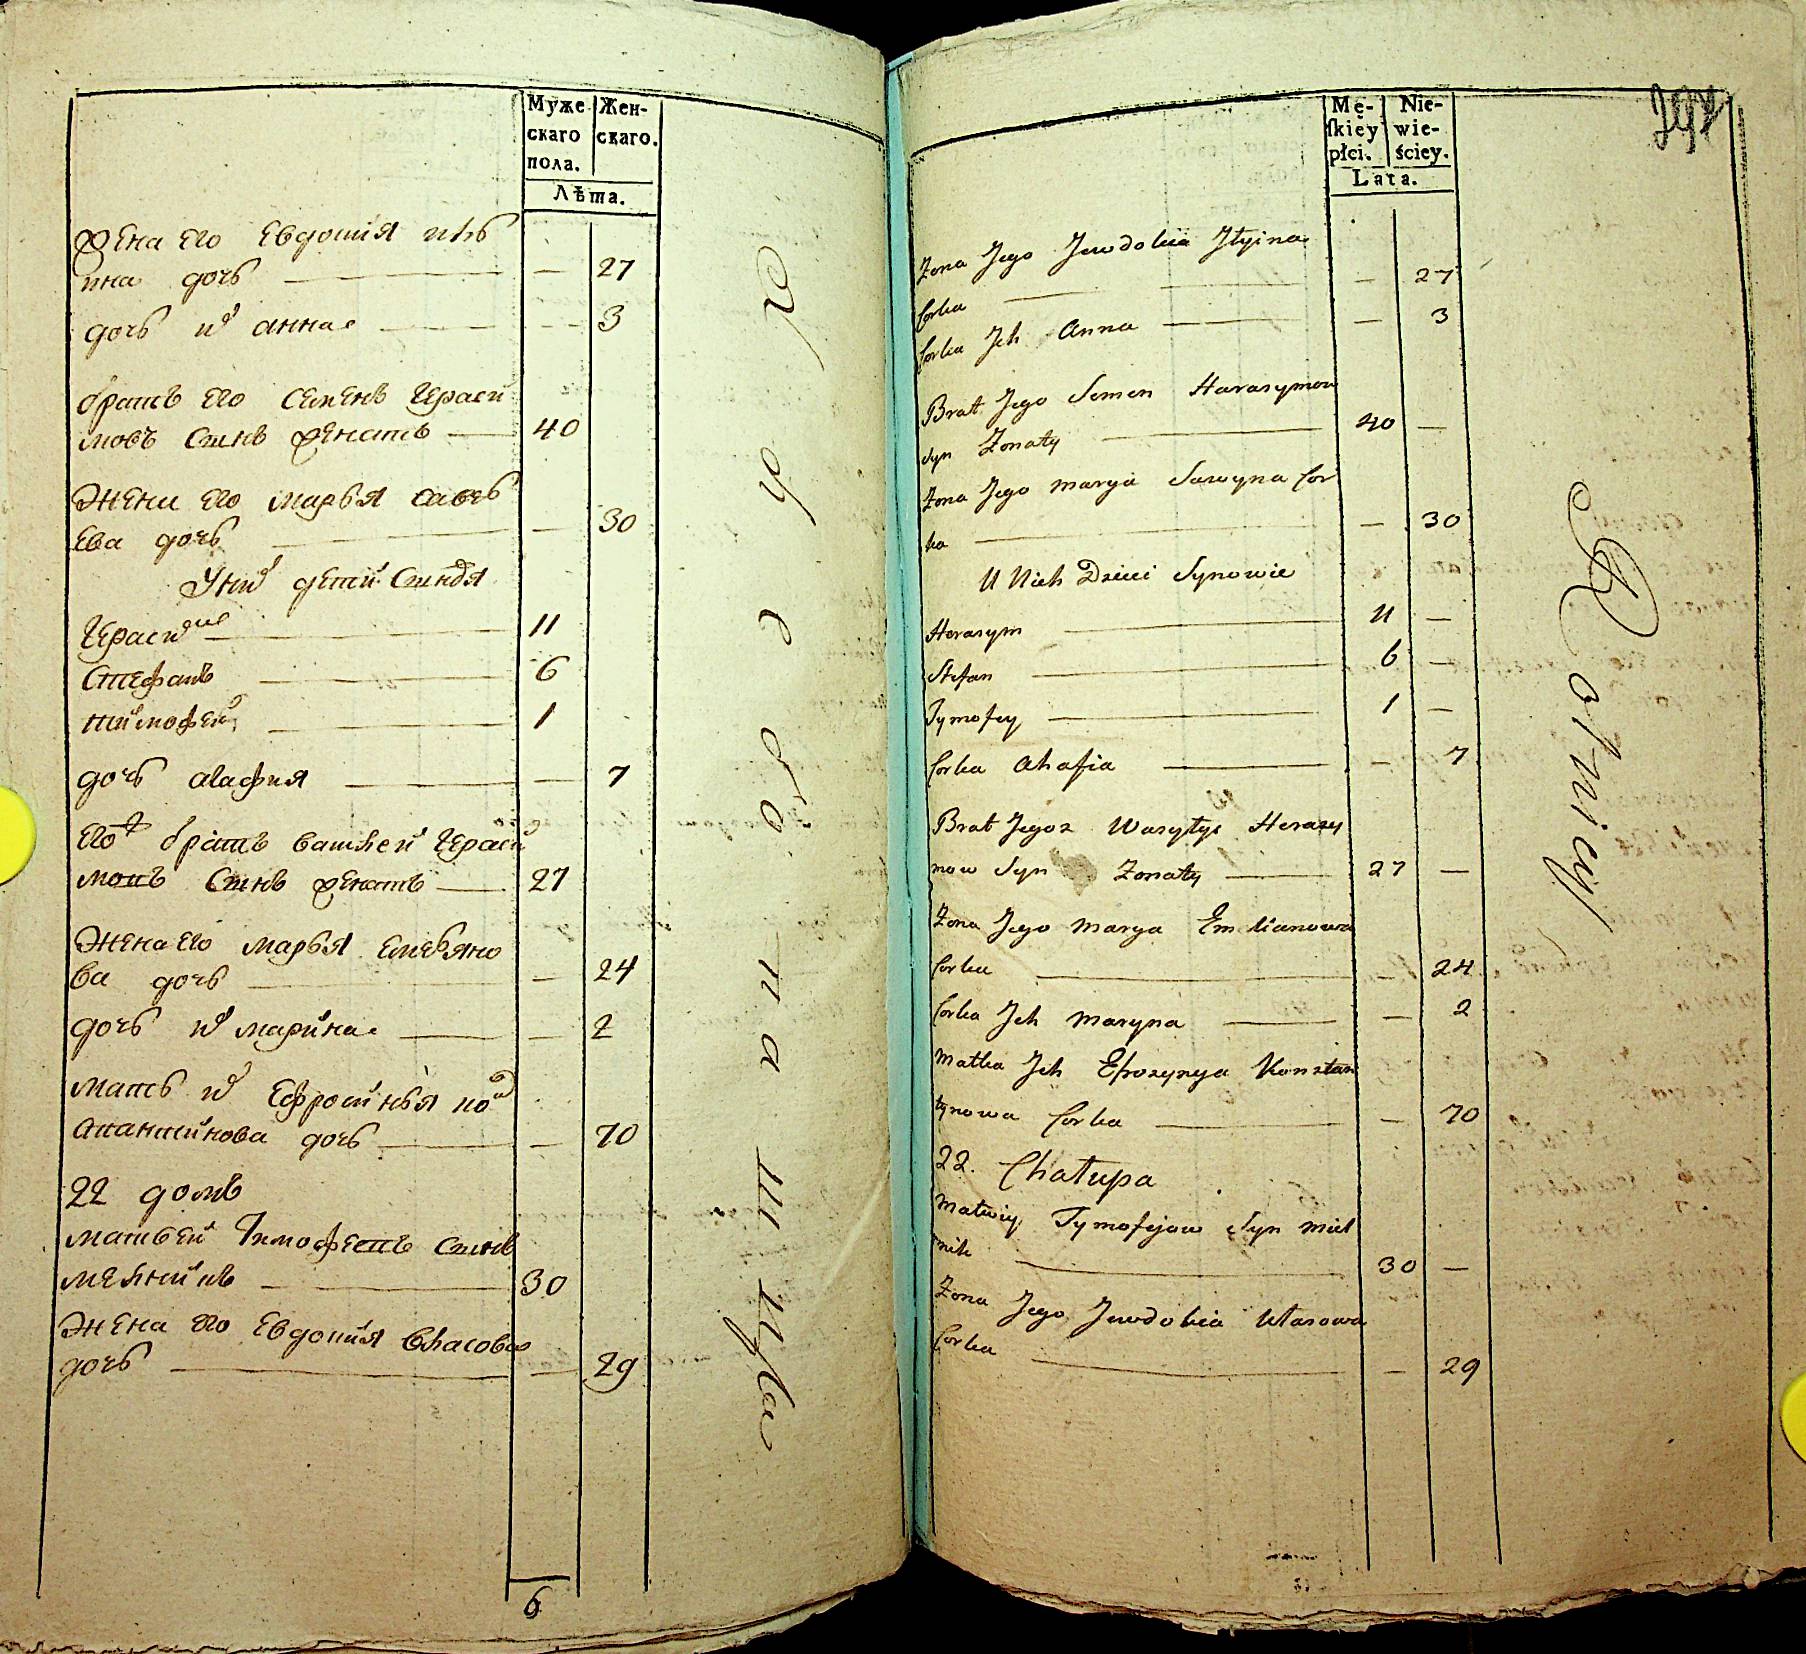 Муже
скаго
пола.
Жен-
скаго.
Лѣта.
жена его Евдокия илъ
ина дочь — 27
дочь их Анна — 3
братъ его Семенъ Гераси
мовъ Сынъ женатъ — 40
жена его Марья савель
ева дочь — 30
У них дети Сыновья
Герасим — 11
Стефанъ — 6
тимофей — 1
дочь агафия — 7
Его ж братъ василей Гераси
мовъ Сынъ женатъ — 27
жена его Марья Емельяно
ва дочь — 24
дочь их марина — 2
мать их Ефросинья кон
стантинова дочь — 70
22 домъ
матвей Тимофеевъ Сынъ
мелникъ — 30
жена его Евдокия Власова
дочь — 29
6
Mę-
ſkiéy
płci.
Nie-
wie-
ściey.
Lata.
Żona Jego Jewdokia Jłyina
Corka — 27
Corka Jch Anna — 3
Brat Jego Semen Harasymow
Syn Żonaty — 40 —
Żona Jego Marya Sawyna Cor
ka — 30
U Nich Dzieci Synowie
Herasym — 11 —
Stefan — 6 —
Tymofey — 1 —
Corka Ahafia — 7
Brat Jegoz Wasylyi Herasy
mow Syn Żonaty — 27 —
Żona Jego Marya Emilianowa
Corka — 24
Corka Jch Maryna — 2
Matka Jch Efrozynya Konstan
tynowa Corka — 70
22. Chałupa
Matwiy Tymofejow Syn Miel
nik — 30 —
Żona Jego Jewdokia Własowa
Corka — 29
Rolnicy